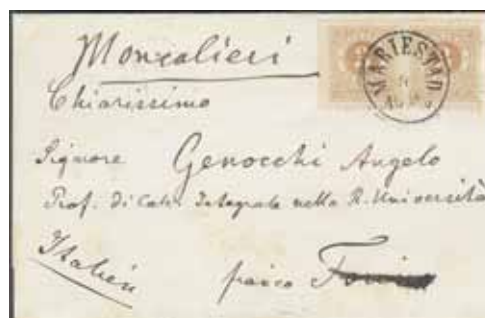 Moncalieri
MARIESTAD
Chiarissimo
Signore Genocchi Angelo
Prof. di Calc. Integrale nella R. Università
Italien franco Torino